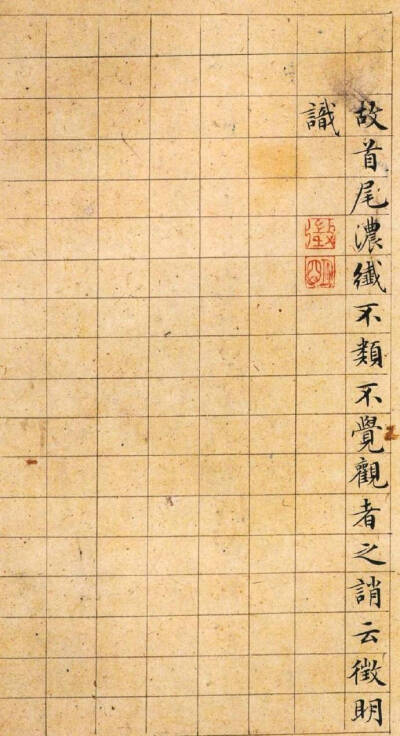 故首尾濃纎不類不覺觀者之誚云徵明
識
徵
明